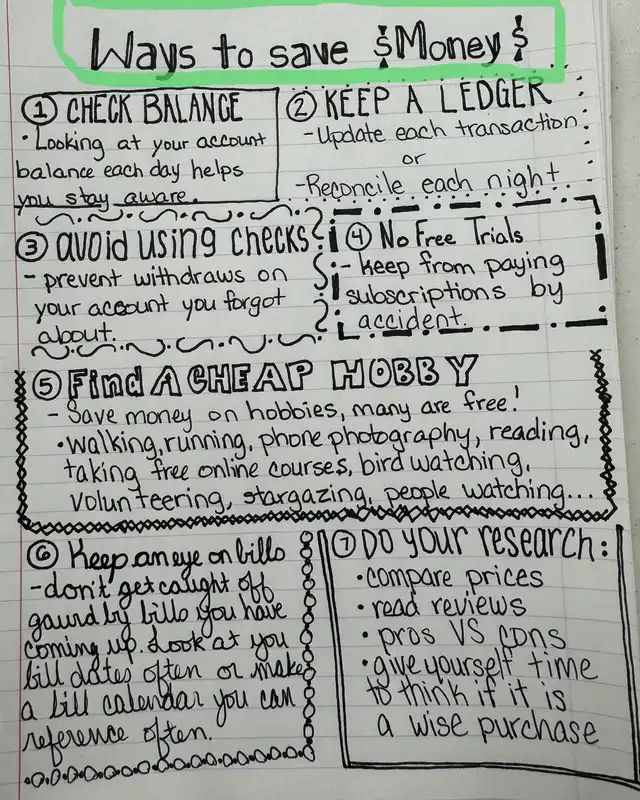 Ways to save $Money$
① CHECK BALANCE
• Looking at your account
balance each day helps
you stay aware.
② KEEP A LEDGER
- Update each transaction
or
- Reconcile each night
③ avoid using checks
- prevent withdraws on
your account you forgot
about.
④ No Free Trials
- keep from paying
subscriptions by
accident.
⑤ Find A CHEAP HOBBY
- Save money on hobbies, many are free!
• walking, running, phone photography, reading,
taking free online courses, bird watching,
volunteering, stargazing, people watching...
⑥ Keep an eye on bills
- don't get caught off
gaurd by bills you have
coming up. Look at you
bill dates often or make
a bill calendar you can
reference often.
⑦ Do your research:
• compare prices
• read reviews
• pros VS cons
• give yourself time
to think if it is
a wise purchase